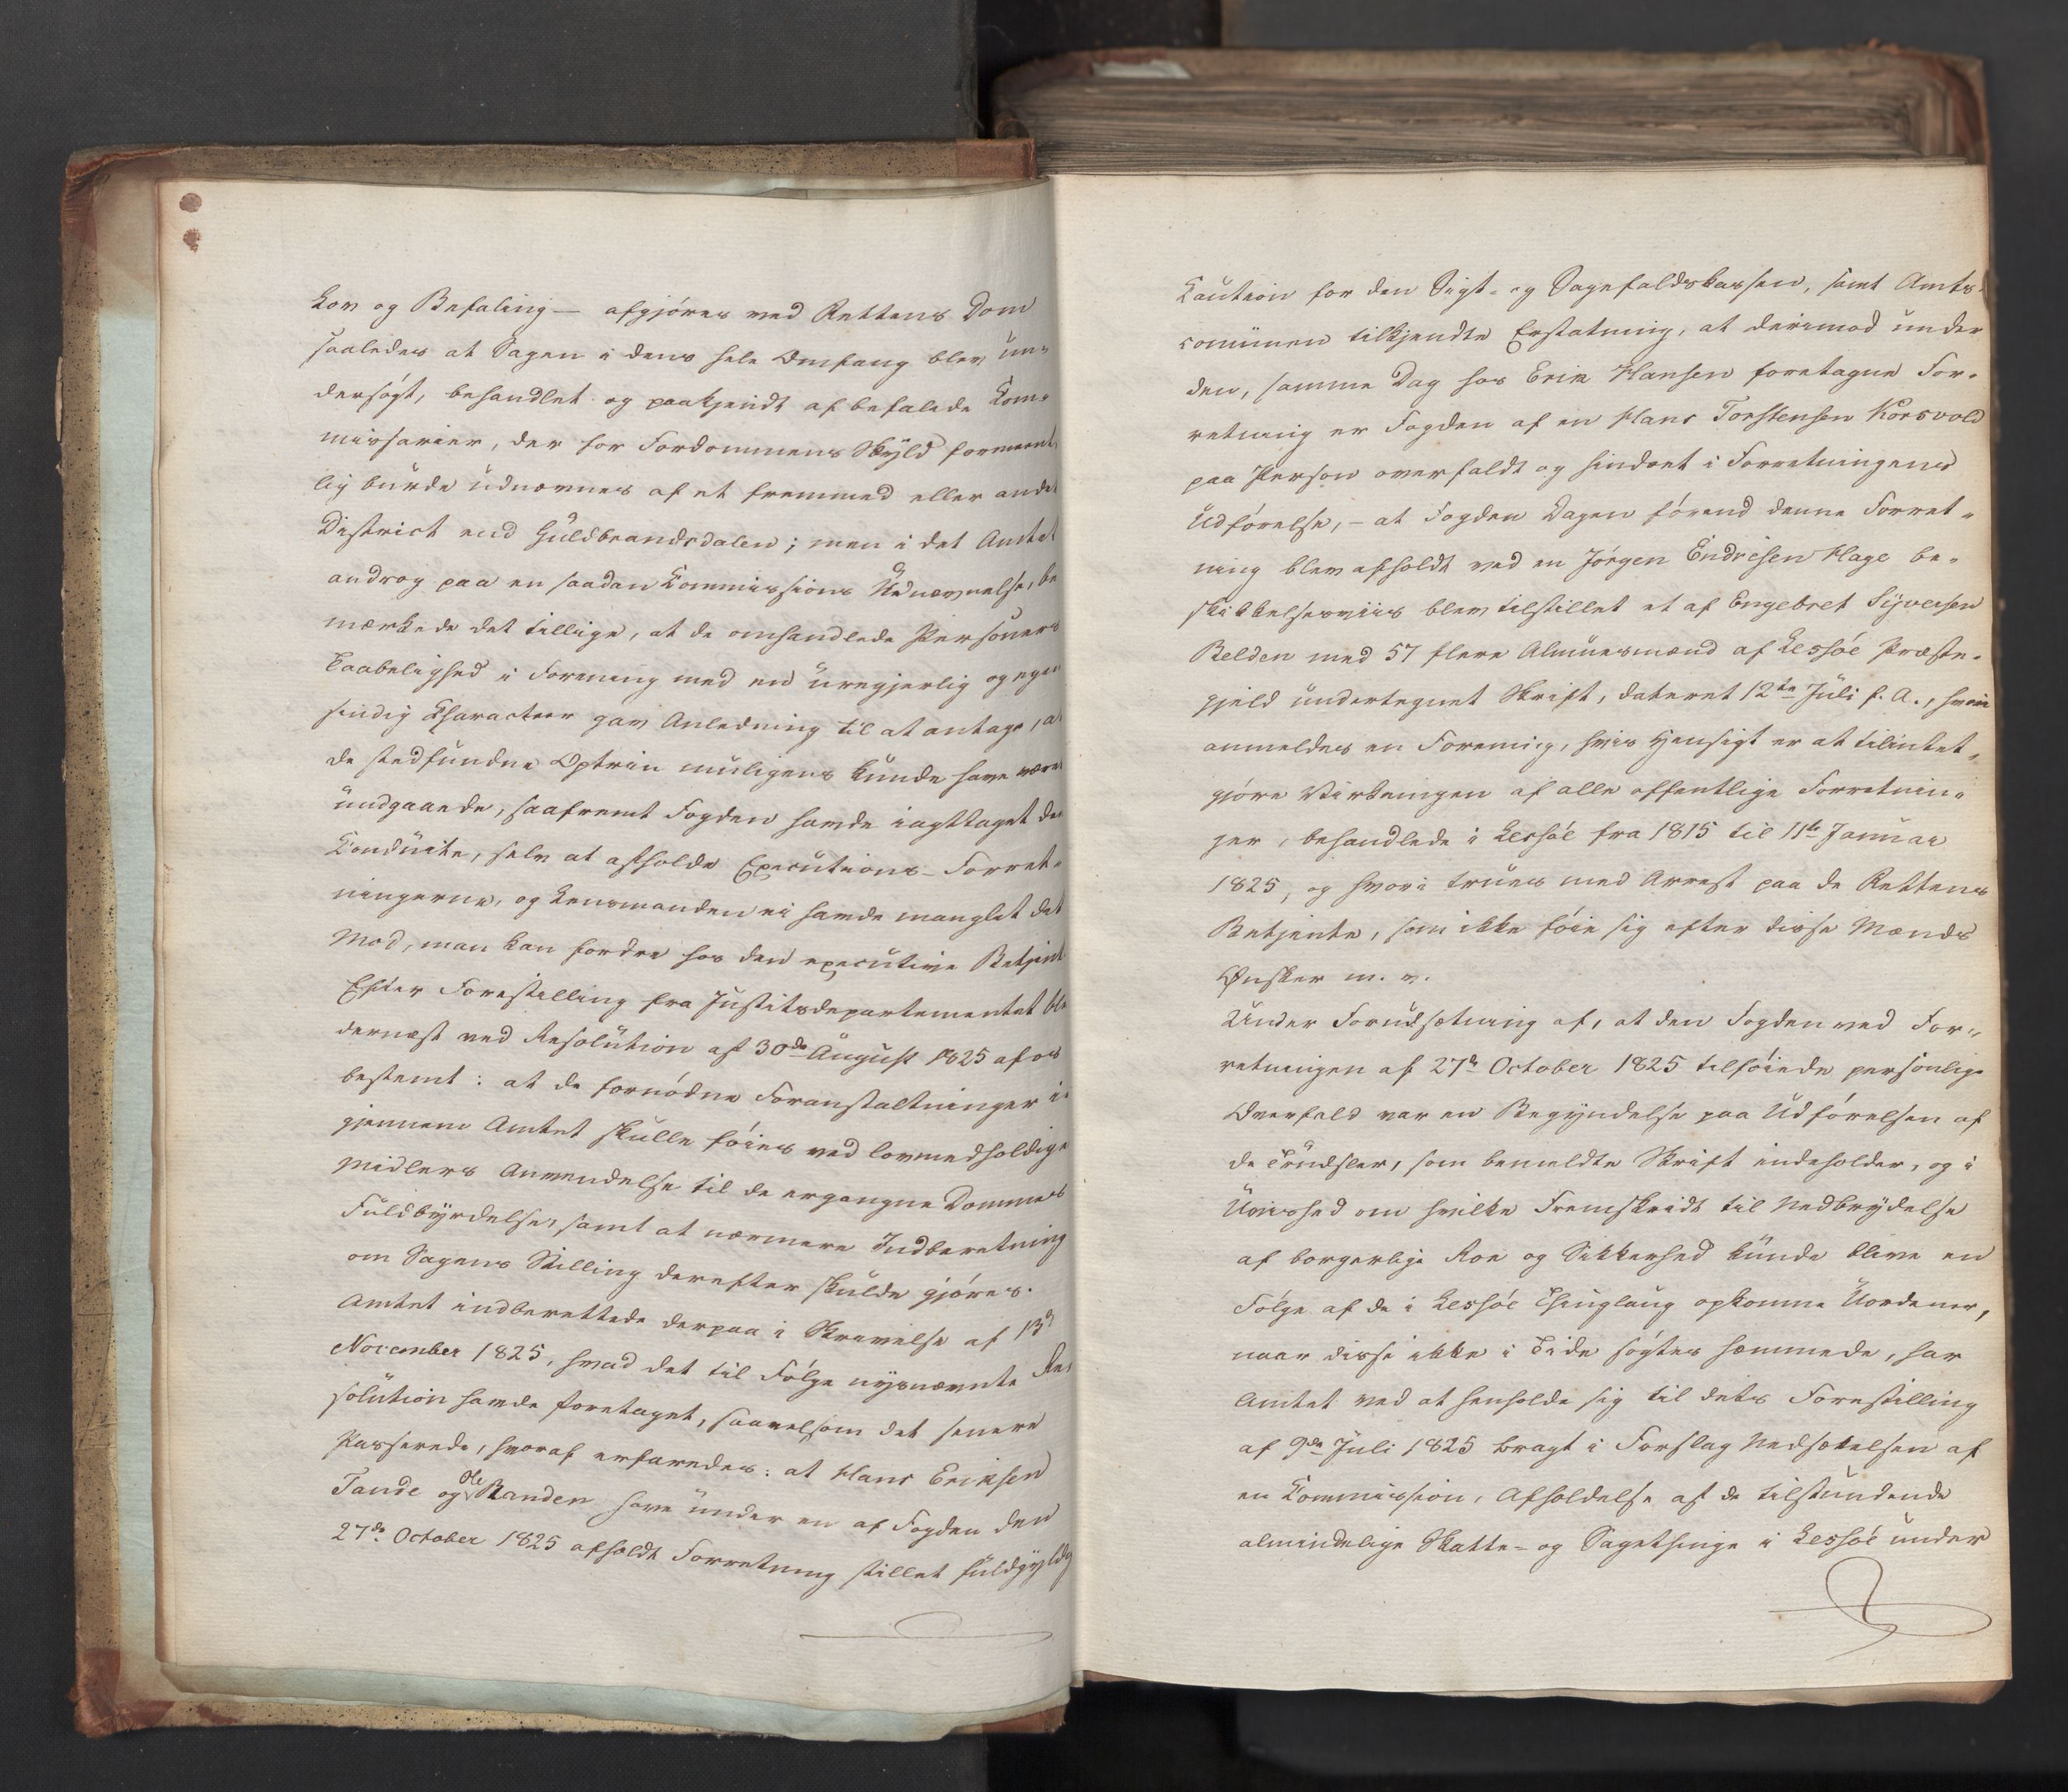 Lov og Befaling — afgjøres ved Rettens Dom
saaledes at Sagen i dens hele Omfang blev un-
dersøgt, behandlet og paakjendt af befalede Kom-
missarier, der for Fordommens Skyld forment-
lig burde udnævnes af et fremmed eller andet
District end Guldbrandsdalen; men i det Amtet
androg paa en saadan Kommissions Udnævnelse, be
mærkede det tillige, at de omhandlede Personers
Taabelighed i Forening med en uregjerlig og egen
sindig Charakteer gav Anledning til at antage, at
de stedfundne Optrin muligens kunde have været
undgaaede, saafremt Fogden havde iagttaget den
Conduite, selv at afholde Executions-Forret-
ningerne, og Lensmanden ei havde manglet det
Mod, man kan fordre hos den executive Betjent
Efter Forestilling fra Justitsdepartementet blev
dernæst ved Resolution af 30de August 1825 af os
bestemt: at de fornødne Foranstaltninger i-
gjennem Amtet skulle føies ved lovmedholdige
Midlers Anvendelse til de ergangne Dommes
Fuldbyrdelse, samt at nærmere Indberetning
om Sagens Stilling derefter skulde gjøres.
Amtet indberettede derpaa i Skrivelse af 13d
November 1825, hvad det til Følge nysnævnte Re-
solution havde foretaget, saavelsom det senere
Passerede, hvoraf erfaredes: at Hans Eriksen
Tande og Ole Randen have under en af Fogden den
27de October 1825 afholdt Forretning stillet fuldgyldig
Caution for den Sigt- og Sagefaldskassen, samt Amts-
comünen tilkjendte Erstatning, at derimod under
den, samme Dag hos Erik Hansen foretagne For-
retning er Fogden af en Hans Torstensen Korsvold
paa Person overfaldt og hindret i Forretningens
Udførelse, — at Fogden Dagen førend denne Forret-
ning blev afholdt ved en Jørgen Endresen Hage be-
skikkelsesviis blev tilstillet et af Engebret Syversen
Belden med 57 flere Almuesmænd af Lessøe Præste-
gjeld undertegnet Skrift, dateret 12te Juli f. A., hvori
anmeldes en Forening, hvis Hensigt er at tilintet-
gjøre Virkningen af alle offentlige Forretnin-
ger, behandlede i Lessøe fra 1815 til 11te Januar
1825, og hvori trues med Arrest paa de Rettens
Betjente, som ikke føie sig efter disse Mænds
Ønsker m. v.
Under Forudsætning af, at den Fogden ved For-
retningen af 27de October 1825 tilføiede personlige
Overfald var en Begyndelse paa Udførelsen af
de Trudsler, som bemeldte Skrift indeholder, og i
Uvished om hvilke Fremskridt til Nedbrydelse
af borgerlige Roe og Sikkerhed kunde blive en
Følge af de i Lessøe Thinglaug opkomne Uordener,
naar disse ikke i Tide søgtes hæmmede, har
Amtet ved at henholde sig til dets Forestilling
af 9de Juli 1825 bragt i Forslag Nedsættelsen af
en Kommission, Afholdelse af de tilstundende
almindelige Skatte- og Sagethinge i Lessøe under